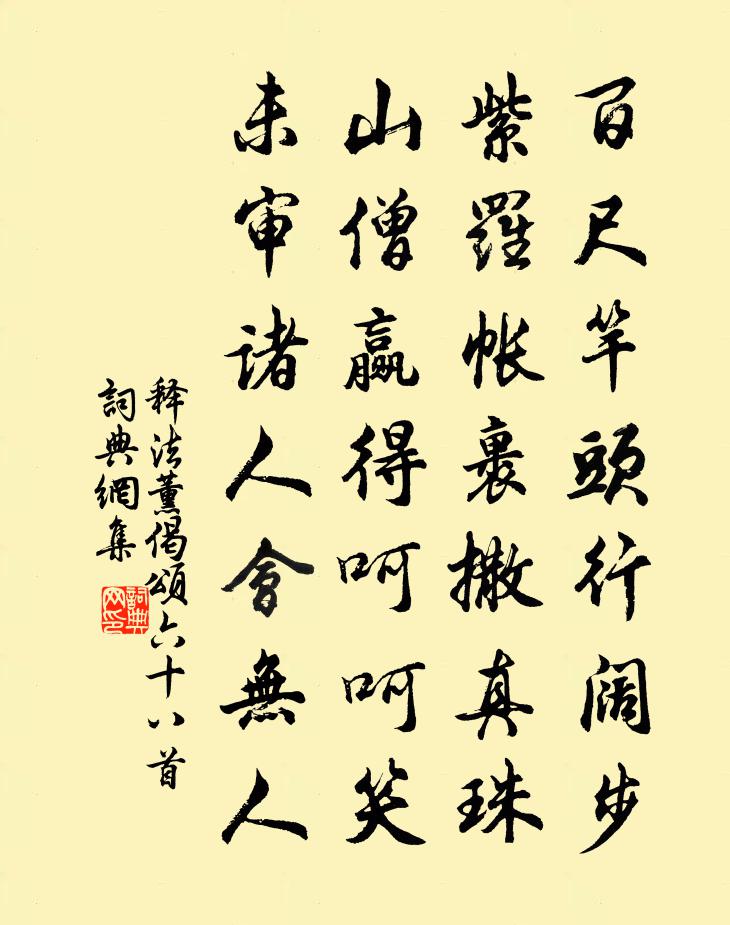 百尺竿頭行阔步
紫羅帐裹撒真珠
山僧贏得呵呵笑
未审諸人會無人
释法薰偈頌六十八首
詞典網集
詞典网印